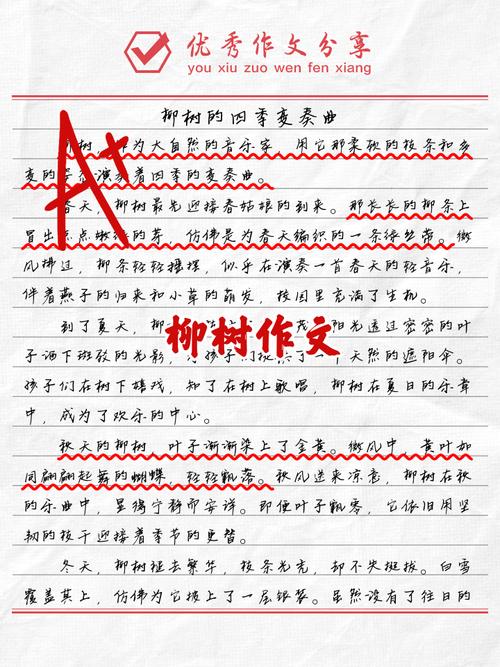 优秀作文分享
you xiu zuo wen fen xiang
柳树的四季变奏曲
A+
柳树,作为大自然的音乐家,用它那柔软的枝条和多
变的姿态演奏着四季的变奏曲。
春天,柳树最先迎接春姑娘的到来。那长长的柳条上
冒出点点嫩绿的芽,仿佛是为春天编织的一条绿丝带。微
风拂过,柳条轻轻摇摆,似乎在演奏一首春天的轻音乐,
伴着燕子的归来和小草的萌发,校园里充满了生机。
到了夏天,柳 茂 阳光透过密密的叶
子洒下斑驳的光影,为孩子们提供了一个天然的遮阳伞。
柳树作文
孩子们在树下嬉戏,知了在树上歌唱,柳树在夏日的乐章
中,成为了欢乐的中心。
秋天的柳树,叶子渐渐染上了金黄。微风中,黄叶如
同翩翩起舞的蝴蝶,轻轻飘落。秋风送来凉意,柳树在秋
的乐曲中,显得宁静而安详。即使叶子飘零,它依旧用坚
韧的枝干迎接着季节的更替。
冬天,柳树褪去繁华,枝条光秃,却不失挺拔。白雪
覆盖其上,仿佛为它披上了一层银装。虽然没有了往日的